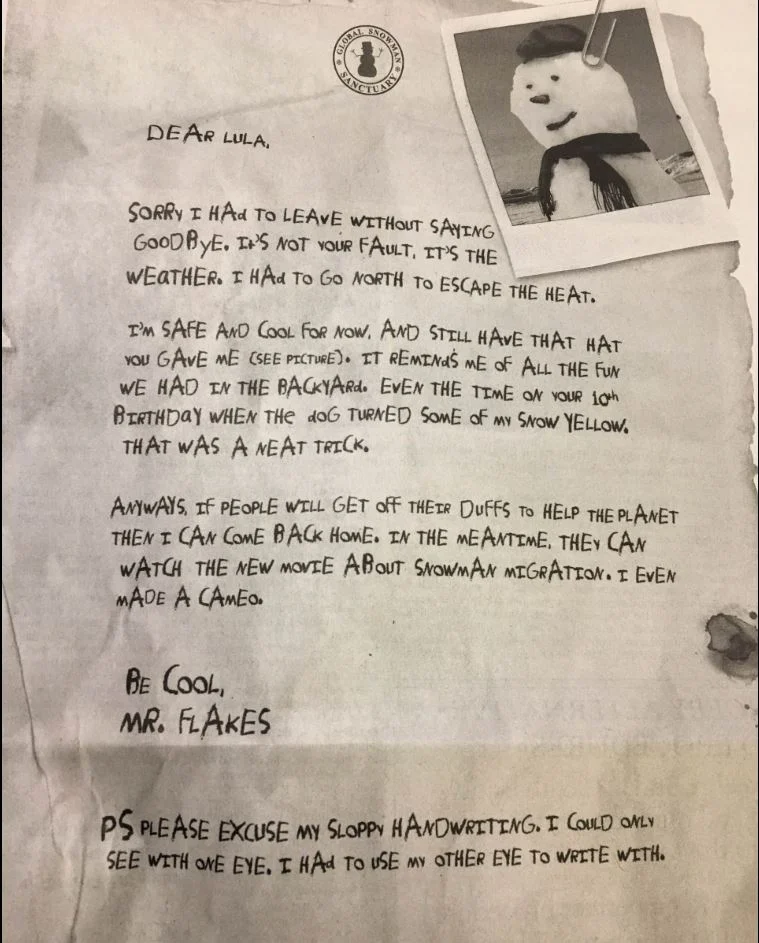 GLOBAL SNOWMAN SANCTUARY
DEAR LULA,
SORRY I HAd TO LEAVE WITHOUT SAYING
GOODByE. It'S NOT YOUR FAULT, IT'S THE
WEaTHER. I HAd TO GO NORTH TO ESCAPE THE HEAT.
I'M SAFE AND COOL FOR NOW, AND STILL HAVE THAT HAT
YOU GAVE ME (SEE PICTURE). IT REMINdS ME OF ALL THE FUN
WE HAD IN THE BACKYARd. EVEN THE TIME ON YOUR 10th
BIRTHDaY WHEN THe doG TURNED SOME OF MY SNOW YELLOW.
THAT WAS A NEAT TRICK.
ANYWAYS, IF PEOPLE WILL GET OfF THEIR DUFFS TO HELP THE PLANET
THEN I CAN COME BACK HOME. IN THE MEANTIME, THEY CAN
WATCH THE NEW MOVIE ABOUT SNOWMAN MIGRATION. I EVEN
MADE A CAMEO.
BE COOL,
MR. FLAKES
PS PLEASE EXCUSE MY SLOPPY HANDWRITING. I COULD ONLY
SEE WITH ONE EYE. I HAd TO USE MY OTHER EYE TO WRITE WITH.